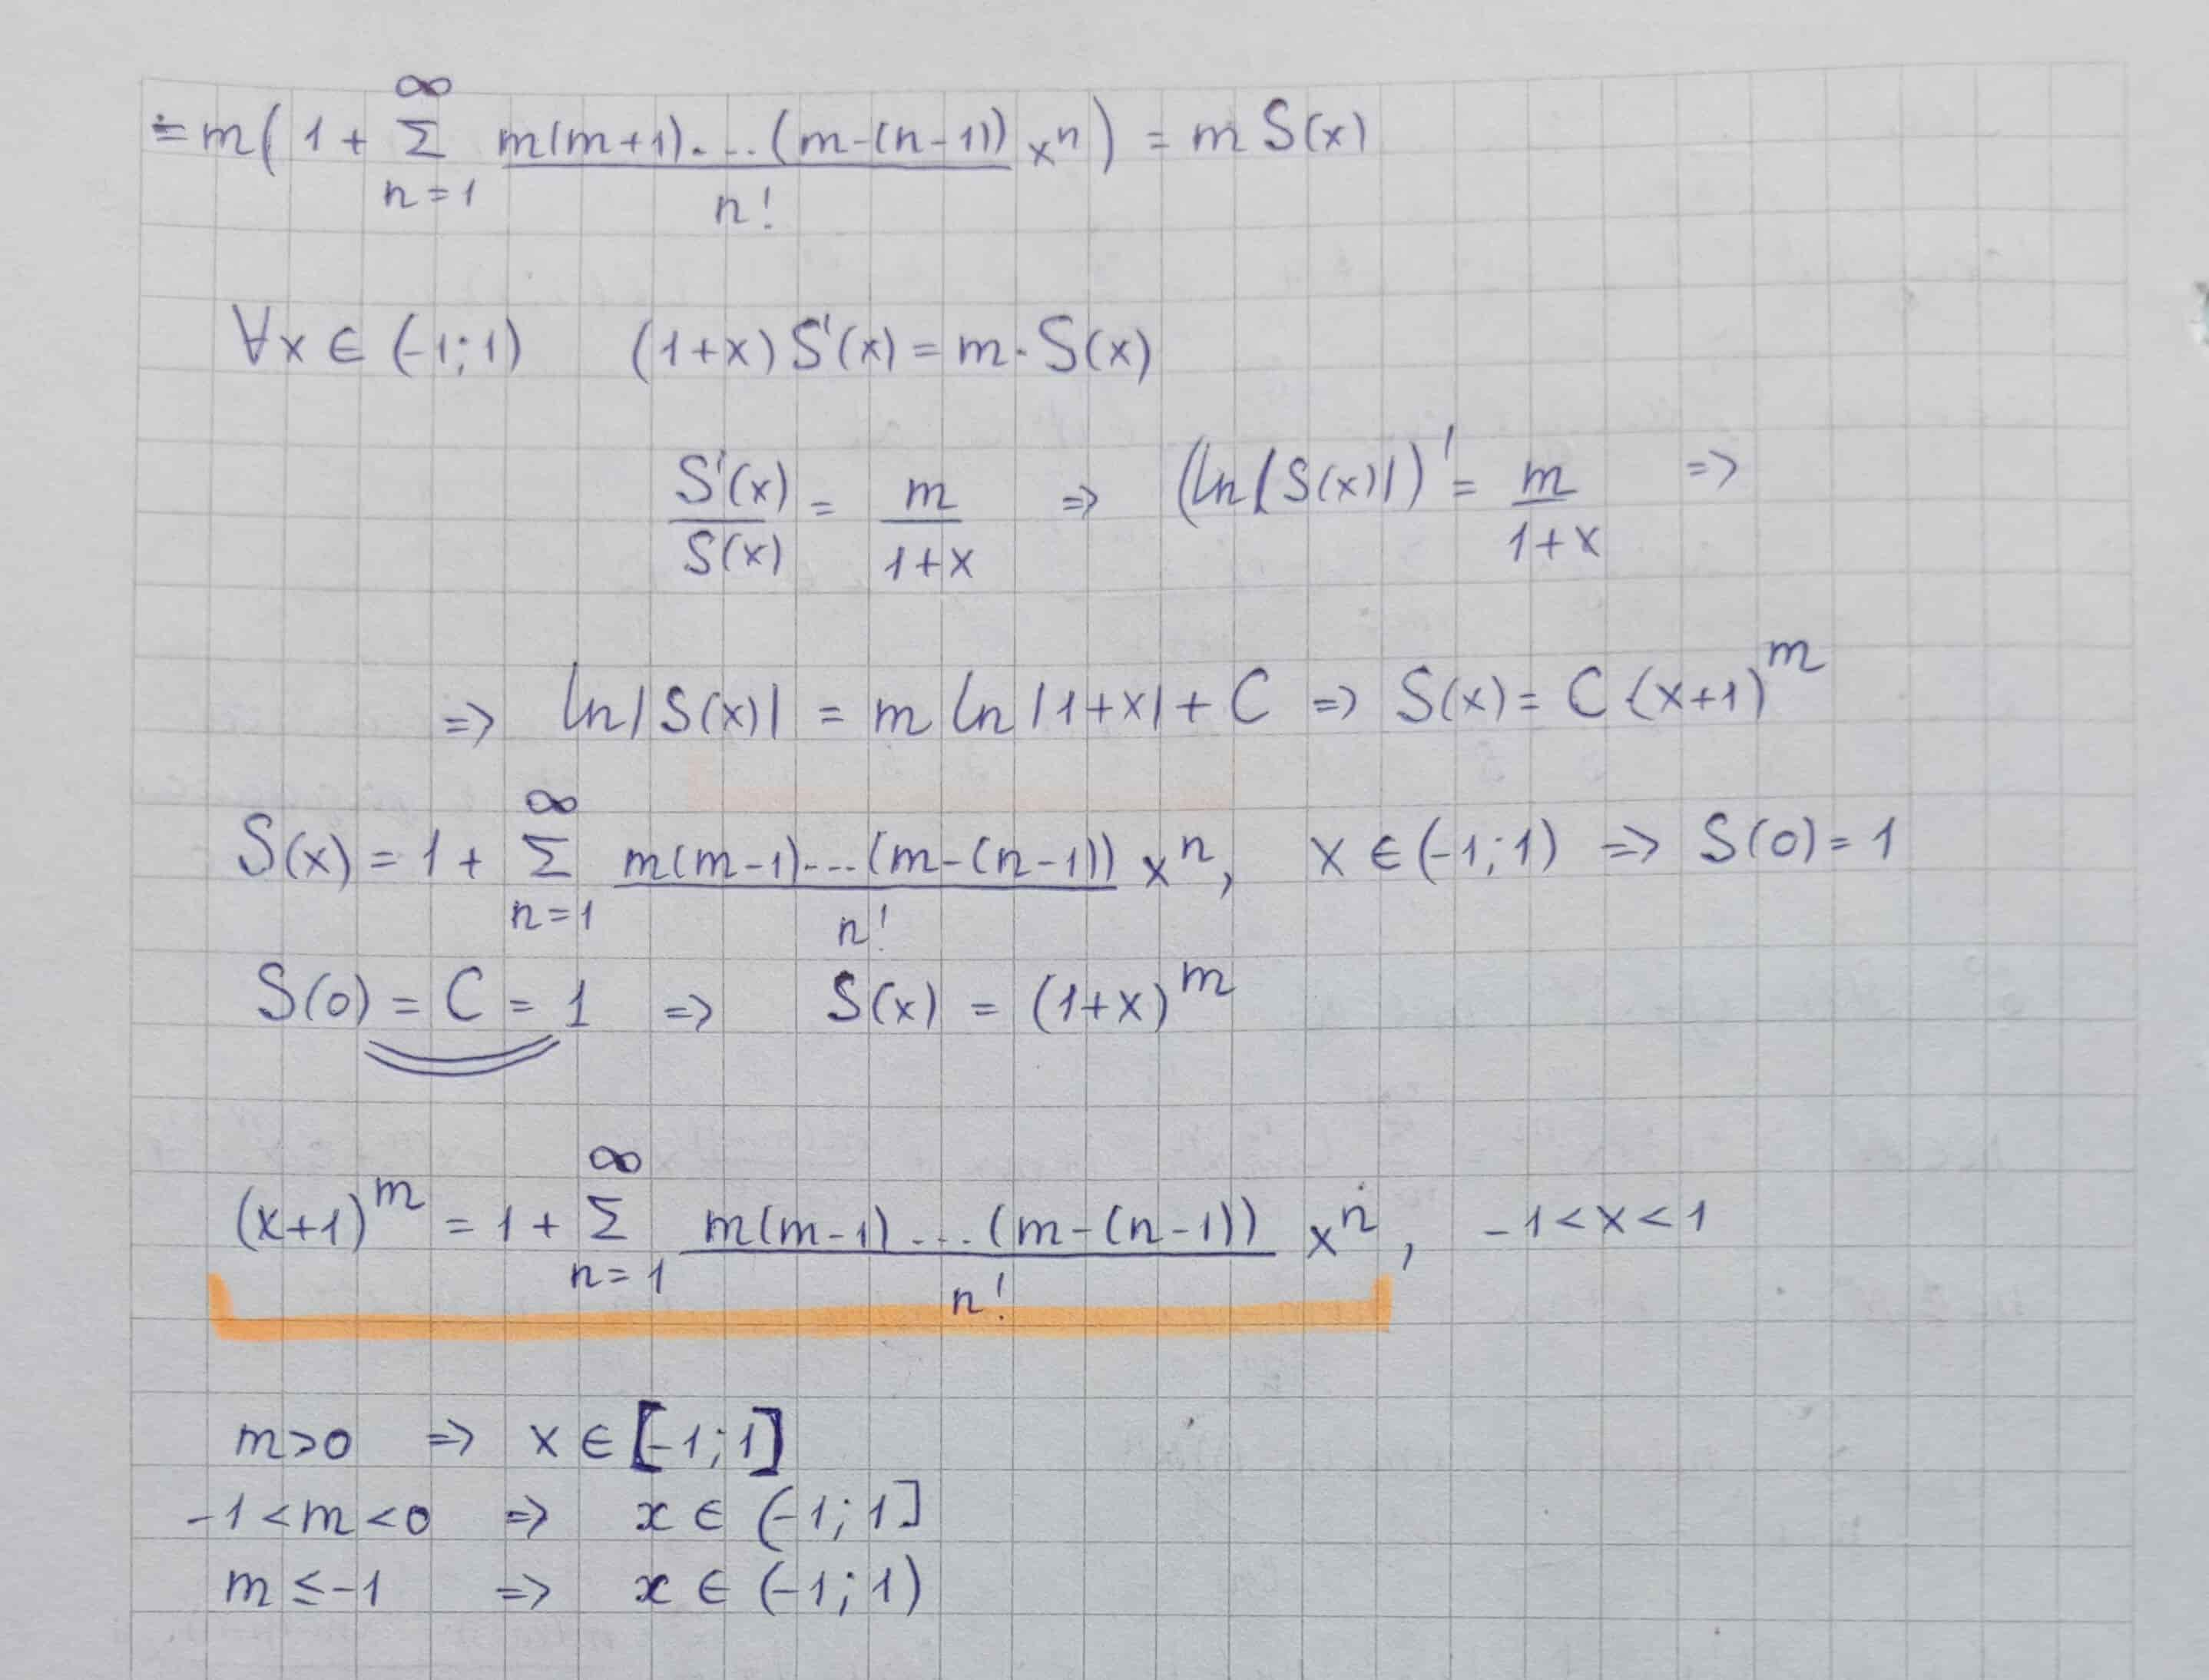 = m(1 + ∞ Σ n=1 m(m+1)·...(m-(n-1)) / n! xⁿ) = m S(x)
∀x ∈ (-1;1) (1+x) S'(x) = m · S(x)
S'(x) / S(x) = m / 1+x => (ln|S(x)|)' = m / 1+x =>
=> ln|S(x)| = m ln|1+x| + C => S(x) = C (x+1)ᵐ
S(x) = 1 + ∞ Σ n=1 m(m-1)...(m-(n-1)) / n! xⁿ, x ∈ (-1;1) => S(0) = 1
S(0) = C = 1 => S(x) = (1+x)ᵐ
(x+1)ᵐ = 1 + ∞ Σ n=1 m(m-1)...(m-(n-1)) / n! xⁿ, -1 < x < 1
m>0 => x ∈ [-1;1]
-1 < m < 0 => x ∈ (-1;1]
m ≤ -1 => x ∈ (-1;1)